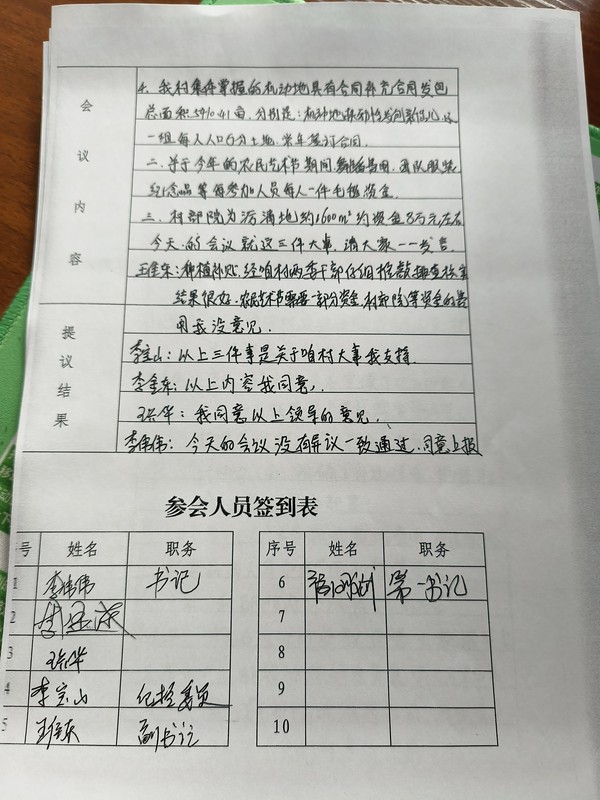 会议内容
4、我村集体掌握的机动地具有合同补充合同发包
总面积5910.41亩,分别是:机动地
一组每人人口6分土地,常年签订合同。
二、关于今年的农民艺术节期间,费用、团队服装
纪念品等每参加人员每人一件毛毯资金。
三、村部院内沥清地约1600m²约资金8万元左右
今天的会议就这三件大事,请大家一一发言
种植补贴,经咱村两委干部仔细
结果很好。农民艺术节需要一部分资金,村部院等资金的费
用我没意见。
提议结果
李宝山:以上三件事是关于咱村大事我支持。
李金东:以上内容我同意。
我同意以上领导的意见。
李伟伟:今天的会议没有异议一致通过,同意上报
参会人员签到表
号 姓名 职务 序号 姓名 职务
1 李伟伟 书记 6 第一书记
2 7
3 8
4 李宝山 纪检委员 9
5 副书记 10